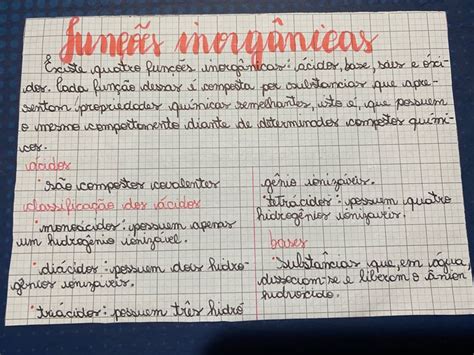 funções inorgânicas
Existe quatro funções inorgânicas: ácidos, base, sais e óxi-
dos. Cada função dessas é composta por substancias que apre-
sentam propriedades químicas semelhantes, isto é, que possuem
o mesmo comportamento diante de determinados compostos quími-
cos.
ácidos
*são compostos covalentes
classificação dos ácidos
*monoácidos: possuem apenas
um hidrogênio ionizável.
*diácidos: possuem dois hidro-
gênios ionizaveis.
*triácidos: possuem três hidró
gênio ionizáveis.
*tetrácidos: possum quatro
hidrogênios ionizáveis.
bases
*substâncias que, em água,
dissociam-se e liberam o ânion
hidróxido.